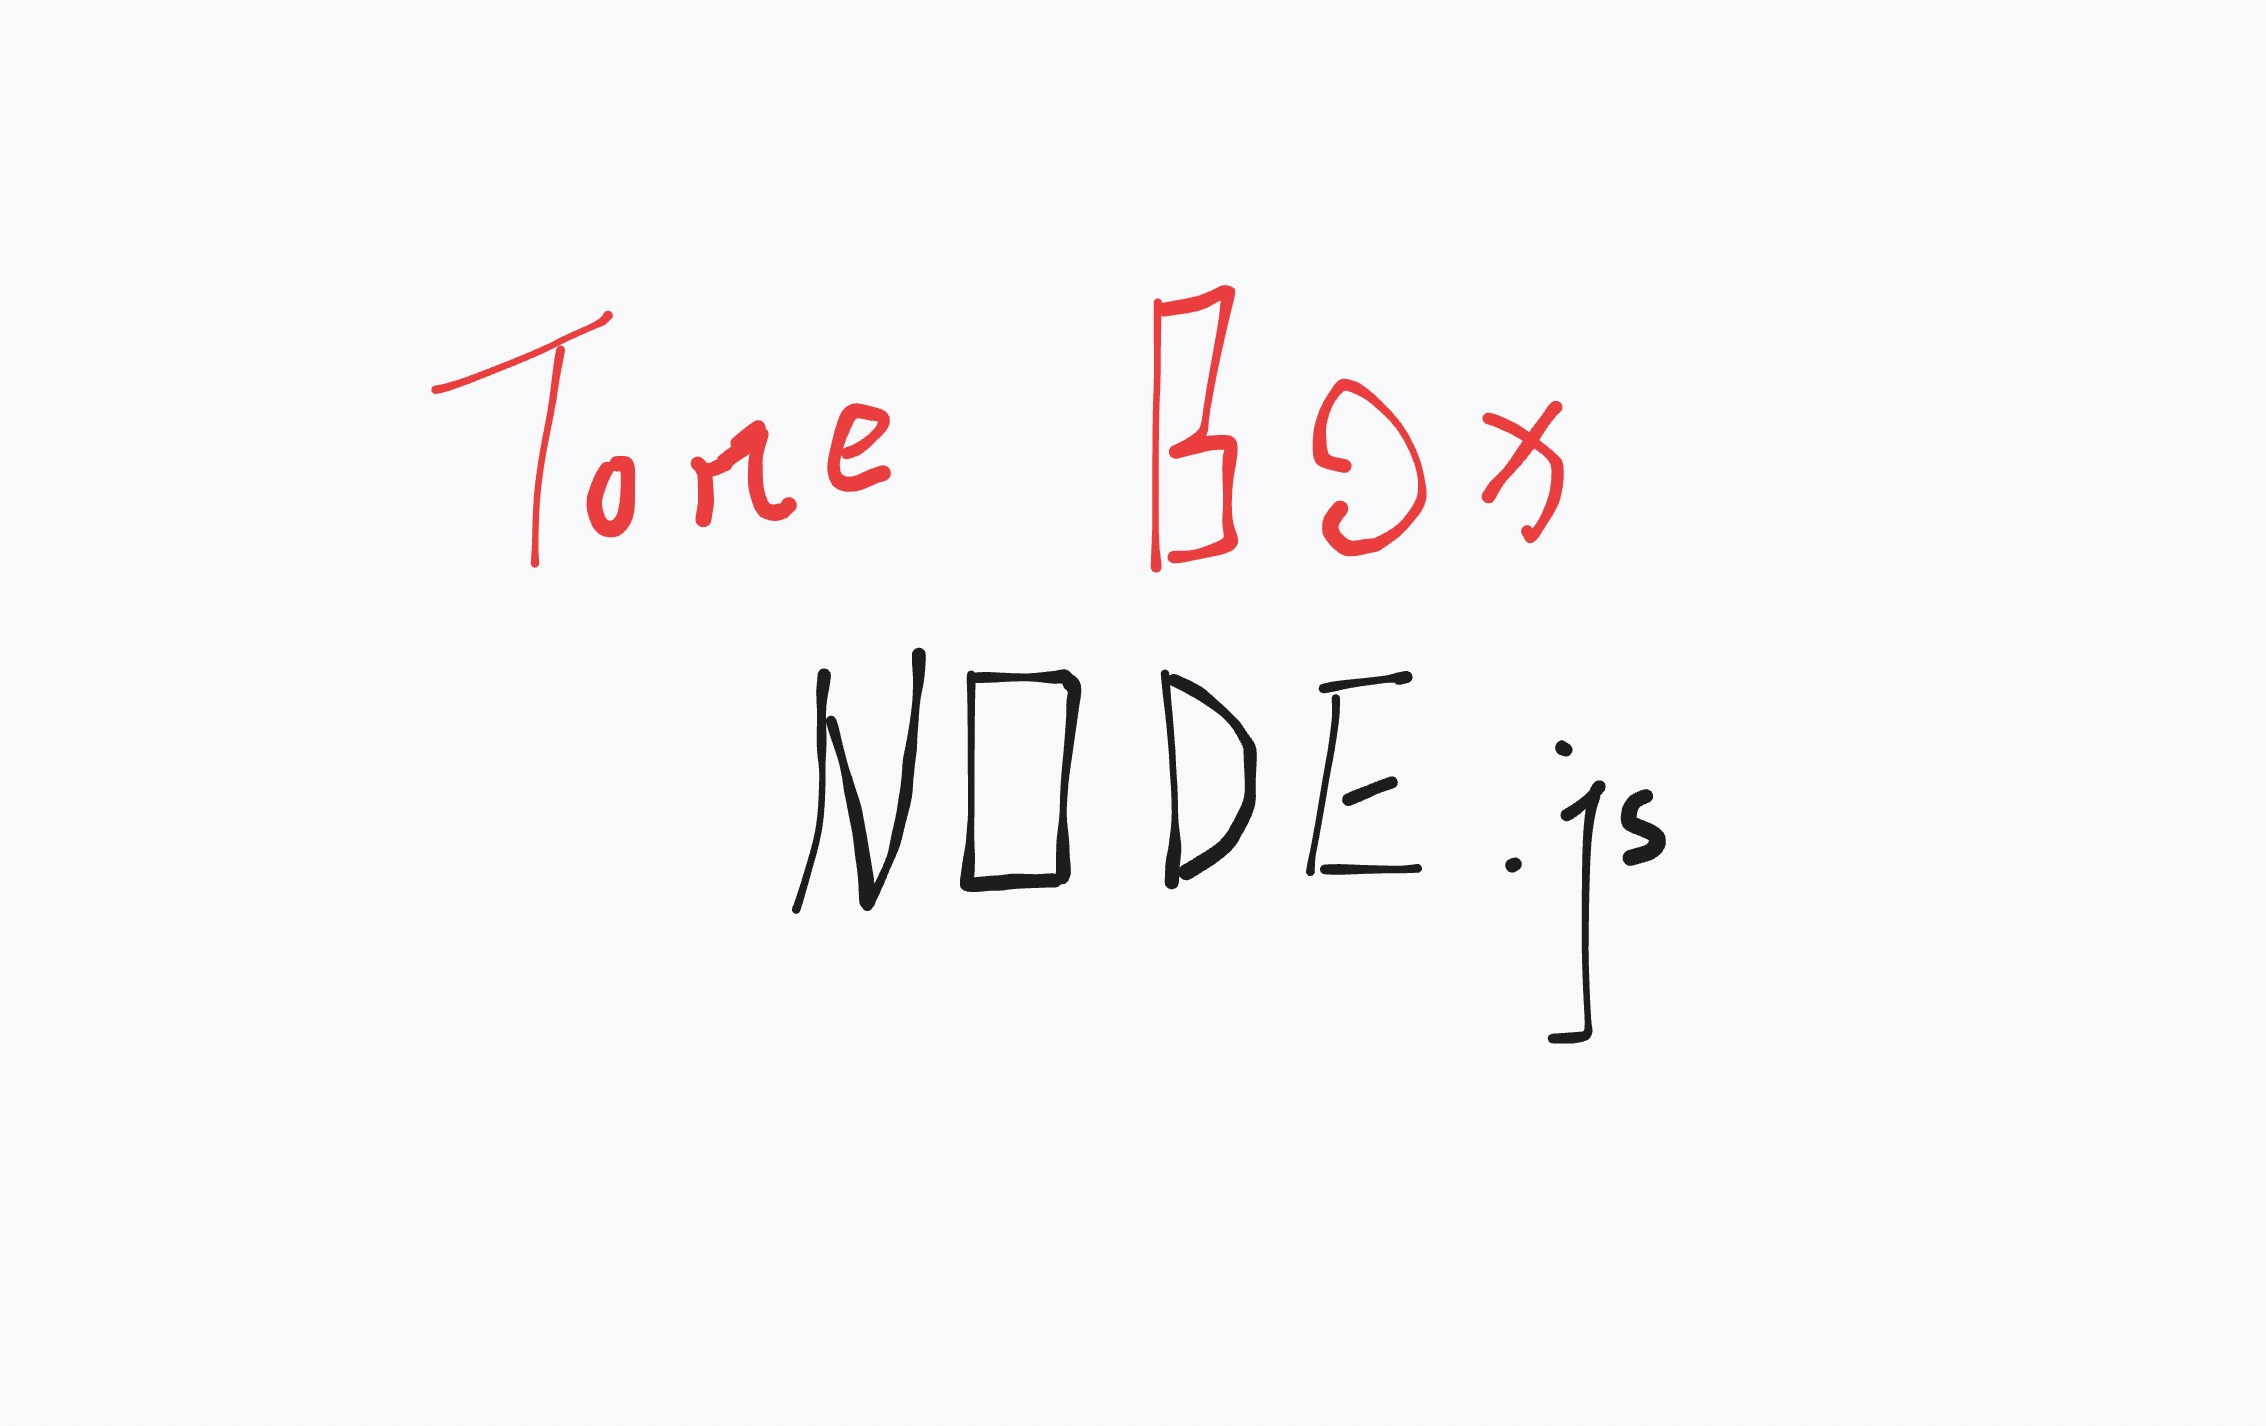 Tone Box
NODE.js